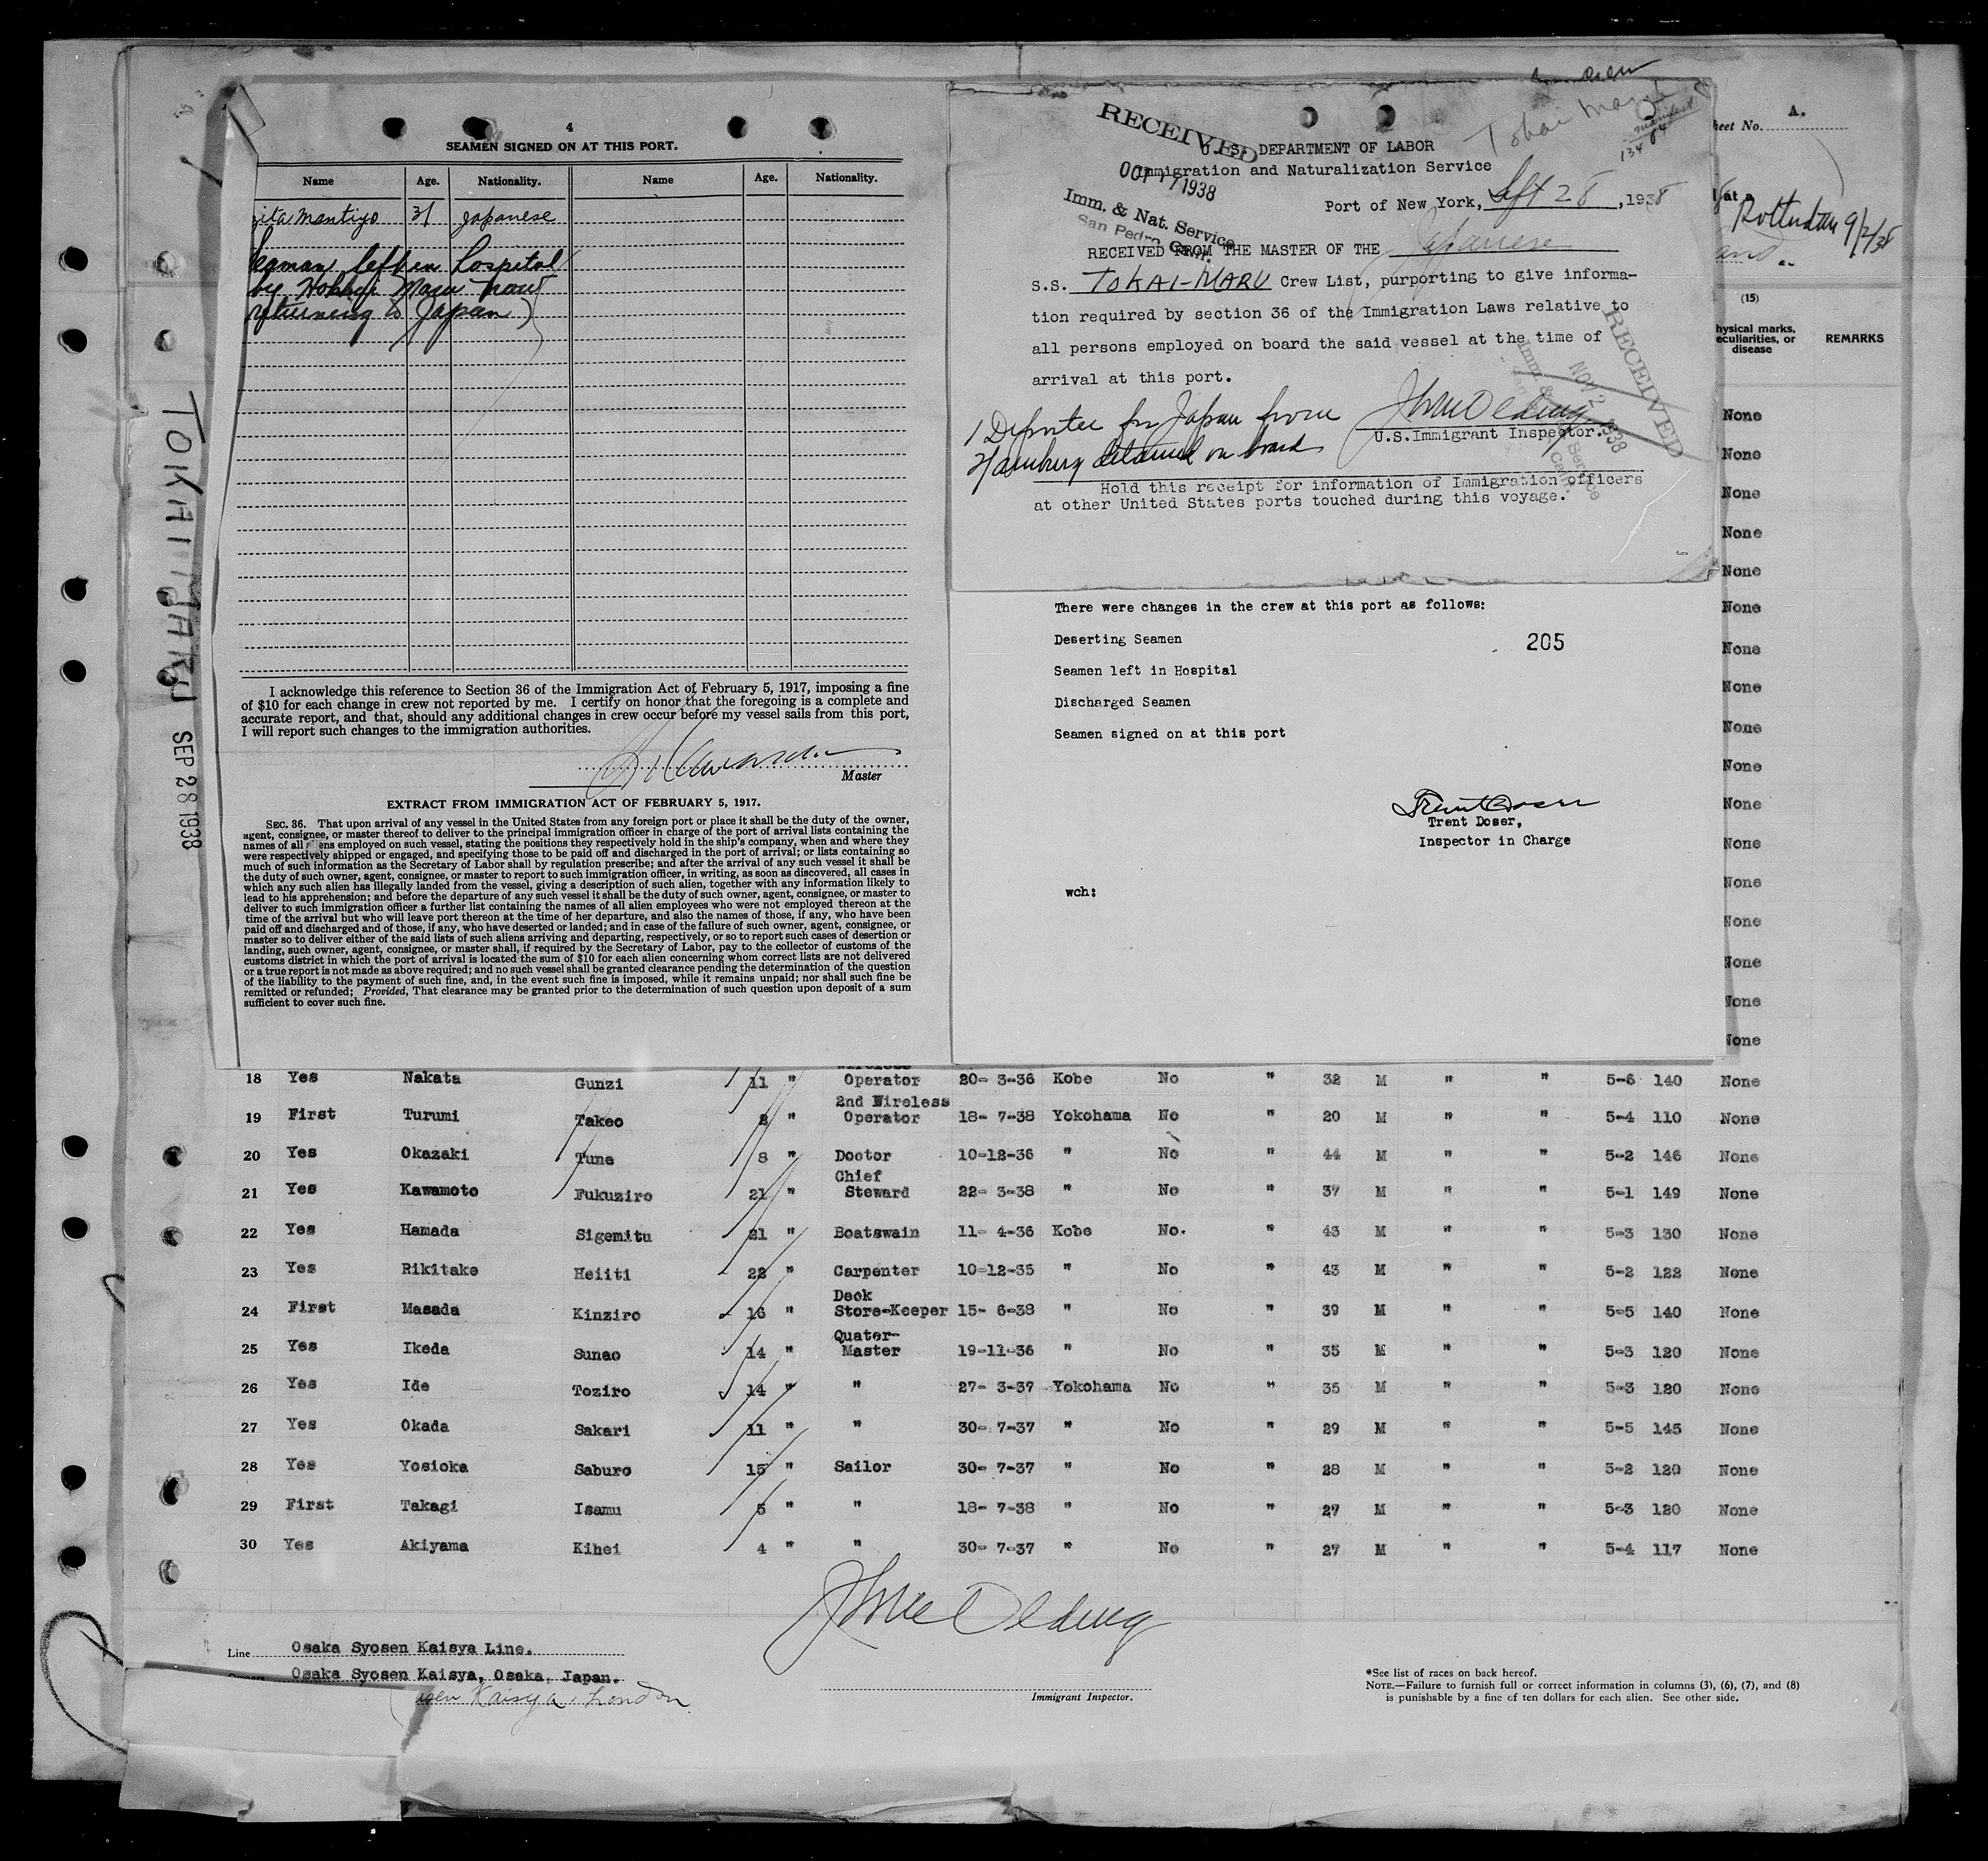 4
SEAMEN SIGNED ON AT THIS PORT.
Name Age. Nationality. Name Age. Nationality.
31 Japanese
left in hospital
by Maru now
returning to Japan)
I acknowledge this reference to Section 36 of the Immigration Act of February 5, 1917, imposing a fine
of $10 for each change in crew not reported by me. I certify on honor that the foregoing is a complete and
accurate report, and that, should any additional changes in crew occur before my vessel sails from this port,
I will report such changes to the immigration authorities.
Master
EXTRACT FROM IMMIGRATION ACT OF FEBRUARY 5, 1917.
SEC. 36. That upon arrival of any vessel in the United States from any foreign port or place it shall be the duty of the owner,
agent, consignee, or master thereof to deliver to the principal immigration officer in charge of the port of arrival lists containing the
names of all ens employed on such vessel, stating the positions they respectively hold in the ship's company, when and where they
were respectively shipped or engaged, and specifying those to be paid off and discharged in the port of arrival; or lists containing so
much of such information as the Secretary of Labor shall by regulation prescribe; and after the arrival of any such vessel it shall be
the duty of such owner, agent, consignee, or master to report to such immigration officer, in writing, as soon as discovered, all cases in
which any such alien has illegally landed from the vessel, giving a description of such alien, together with any information likely to
lead to his apprehension; and before the departure of any such vessel it shall be the duty of such owner, agent, consignee, or master to
deliver to such immigration officer a further list containing the names of all alien employees who were not employed thereon at the
time of the arrival but who will leave port thereon at the time of her departure, and also the names of those, if any, who have been
paid off and discharged and of those, if any, who have deserted or landed; and in case of the failure of such owner, agent, consignee, or
master so to deliver either of the said lists of such aliens arriving and departing, respectively, or so to report such cases of desertion or
landing, such owner, agent, consignee, or master shall, if required by the Secretary of Labor, pay to the collector of customs of the
customs district in which the port of arrival is located the sum of $10 for each alien concerning whom correct lists are not delivered
or a true report is not made as above required; and no such vessel shall be granted clearance pending the determination of the question
of the liability to the payment of such fine, and, in the event such fine is imposed, while it remains unpaid; nor shall such fine be
remitted or refunded; Provided, That clearance may be granted prior to the determination of such question upon deposit of a sum
sufficient to cover such fine.
TOKAI MARU SEP 28 1938
Tokai Maru
manifest
134
RECEIVED
OCT 17 1938
Imm. & Nat. Service
San Pedro Cal.
U. S. DEPARTMENT OF LABOR
Immigration and Naturalization Service
Port of New York, Sept 28, 1938
RECEIVED FROM THE MASTER OF THE Japanese
S.S. TOKAI-MARU Crew List, purporting to give informa-
tion required by section 36 of the Immigration Laws relative to
all persons employed on board the said vessel at the time of
arrival at this port.
RECEIVED
NOV 2 1938
1 Deportee for Japan from
Hamburg detained on board
U.S.Immigrant Inspector.
Hold this receipt for information of Immigration officers
at other United States ports touched during this voyage.
There were changes in the crew at this port as follows:
Deserting Seamen 205
Seamen left in Hospital
Discharged Seamen
Seamen signed on at this port
Trent Doser,
Inspector in Charge
wch:
heet No. A.
at Rotterdam 9/2/38
and.
(15)
hysical marks,
eculiarities, or
disease
REMARKS
None
None
None
None
None
None
None
None
None
None
None
None
None
None
None
None
None
18 Yes Nakata Gunzi 11 " Operator 20- 3-36 Kobe No " 32 M " " 5-6 140 None
19 First Turumi Takeo 2 " 2nd Wireless Operator 18- 7-38 Yokohama No " 20 M " " 5-4 110 None
20 Yes Okazaki Tune 8 " Doctor 10-12-36 " No " 44 M " " 5-2 146 None
21 Yes Kawamoto Fukuziro 21 " Chief Steward 22- 3-38 " No " 37 M " " 5-1 149 None
22 Yes Hamada Sigemitu 21 " Boatswain 11- 4-36 Kobe No. " 43 M " " 5-3 130 None
23 Yes Rikitake Heiiti 22 " Carpenter 10-12-35 " No " 43 M " " 5-2 122 None
24 First Masada Kinziro 16 " Deck Store-Keeper 15- 6-38 " No " 39 M " " 5-5 140 None
25 Yes Ikeda Sunao 14 " Quater-Master 19-11-36 " No " 35 M " " 5-3 120 None
26 Yes Ide Toziro 14 " " 27- 3-37 Yokohama No " 35 M " " 5-3 120 None
27 Yes Okada Sakari 11 " " 30- 7-37 " No " 29 M " " 5-5 145 None
28 Yes Yosioka Saburo 15 " Sailor 30- 7-37 " No " 28 M " " 5-2 120 None
29 First Takagi Isamu 5 " " 18- 7-38 " No " 27 M " " 5-3 120 None
30 Yes Akiyama Kihei 4 " " 30- 7-37 " No " 27 M " " 5-4 117 None
Line Osaka Syosen Kaisya Line.
Owners Osaka Syosen Kaisya, Osaka, Japan.
Kaisya, London
Immigrant Inspector.
*See list of races on back hereof.
NOTE.—Failure to furnish full or correct information in columns (3), (6), (7), and (8)
is punishable by a fine of ten dollars for each alien. See other side.